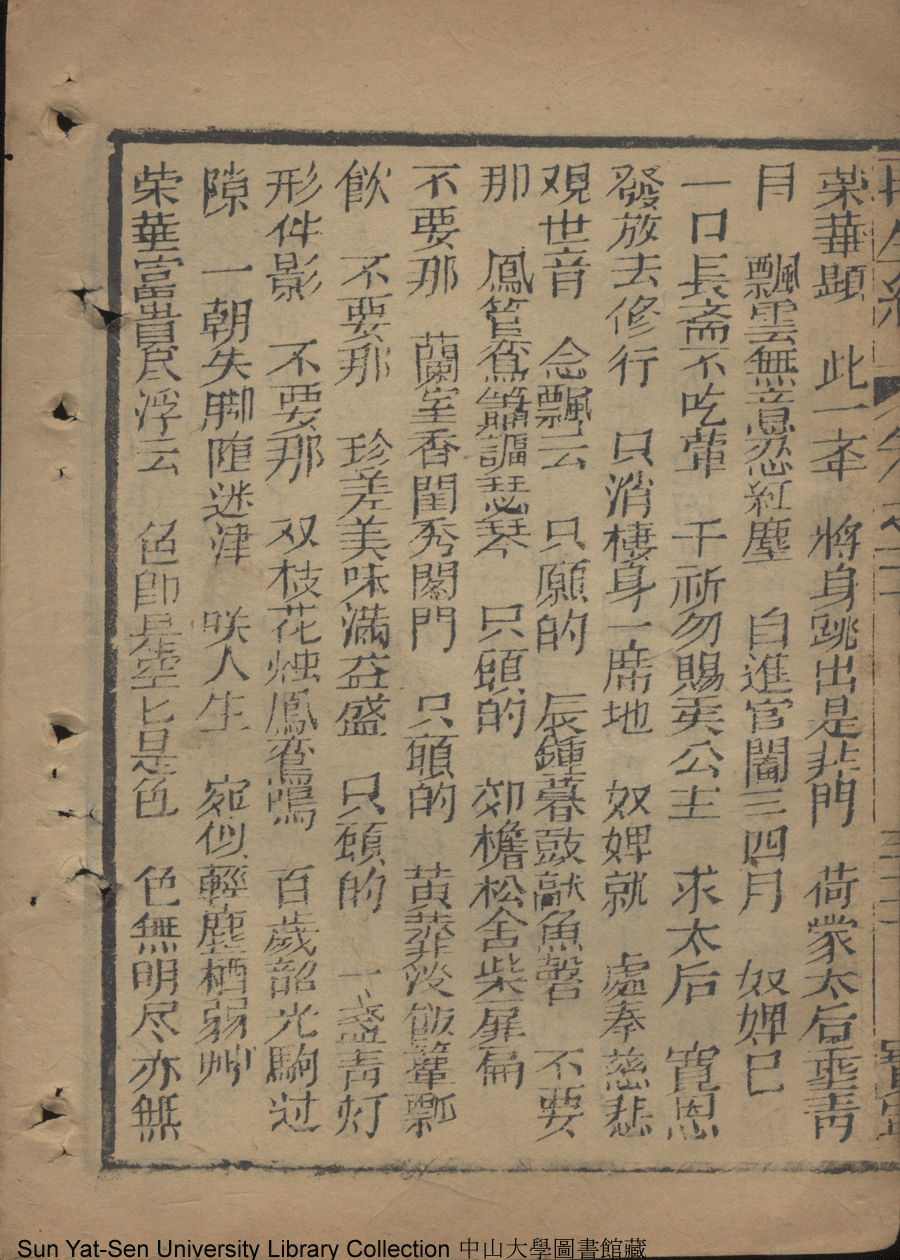 再生緣 卷之十 三十
榮華顕 此一本 將身跳出是非門 荷蒙太后垂青
目 飄雲無意忍紅塵 自進官闈三四月 奴婢巳
一口長斋不吃葷 千祈勿賜奕公主 求太后 寛恩
發放去修行 只消棲身一席地 奴婢就 處奉慈悲
观世音 念飄云 只願的 辰鍾暮鼓献魚磬 不要
那 鳳管鸞簫謳瑟琴 只頭的 茆檐松舍柴扉扁
不要那 蘭室香閨秀閣門 只頭的 黄虀淡飯簞瓢
飲 不要那 珍羞美味滿益盛 只頭的 一盏青灯
形件影 不要那 双枝花烛鳳鸞鳴 百歲韶光駒过
隙 一朝失脚堕迷津 咲人生 宛似輕塵栖弱艸
柴華富貴尽浮云 色即是空匕是色 色無明尽亦無
Sun Yat-Sen University Library Collection 中山大學圖書館藏